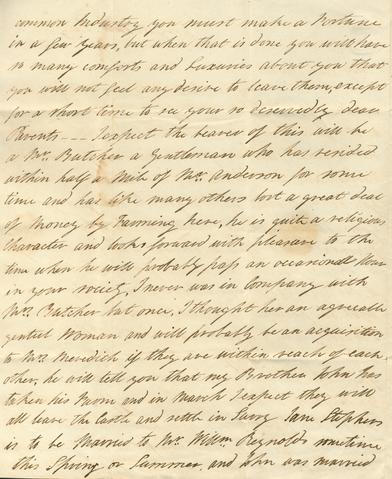 common Industry you must make a Fortune
in a few Years, but when that is done you will have
so many comforts and Luxuries about you that
you will not feel any desire to leave them, except
for a short time to see your so deservedly dear
Parents --- I expect the bearer of this will be
a Mr. Butcher a Gentleman who has resided
within half a Mile of Mr. Anderson for some
time and has like many others lost a great deal
of Money by Farming here, he is quite a religious
Character and looks forward with pleasure to the
time when he will probably pass an occasional Hour
in your society, I never was in Company with
Mrs. Butcher but once, I thought her an agreeable
genteel Woman and will probably be an acquisition
to Mrs. Meredith if they are within reach of each
other, he will tell you that my Brother John has
taken his Farm and in March I expect they will
all leave the Castle and settle in Jane Stephens
is to be Married to Mr. Willm. Reynolds sometime
this Spring or Summer, and John was married